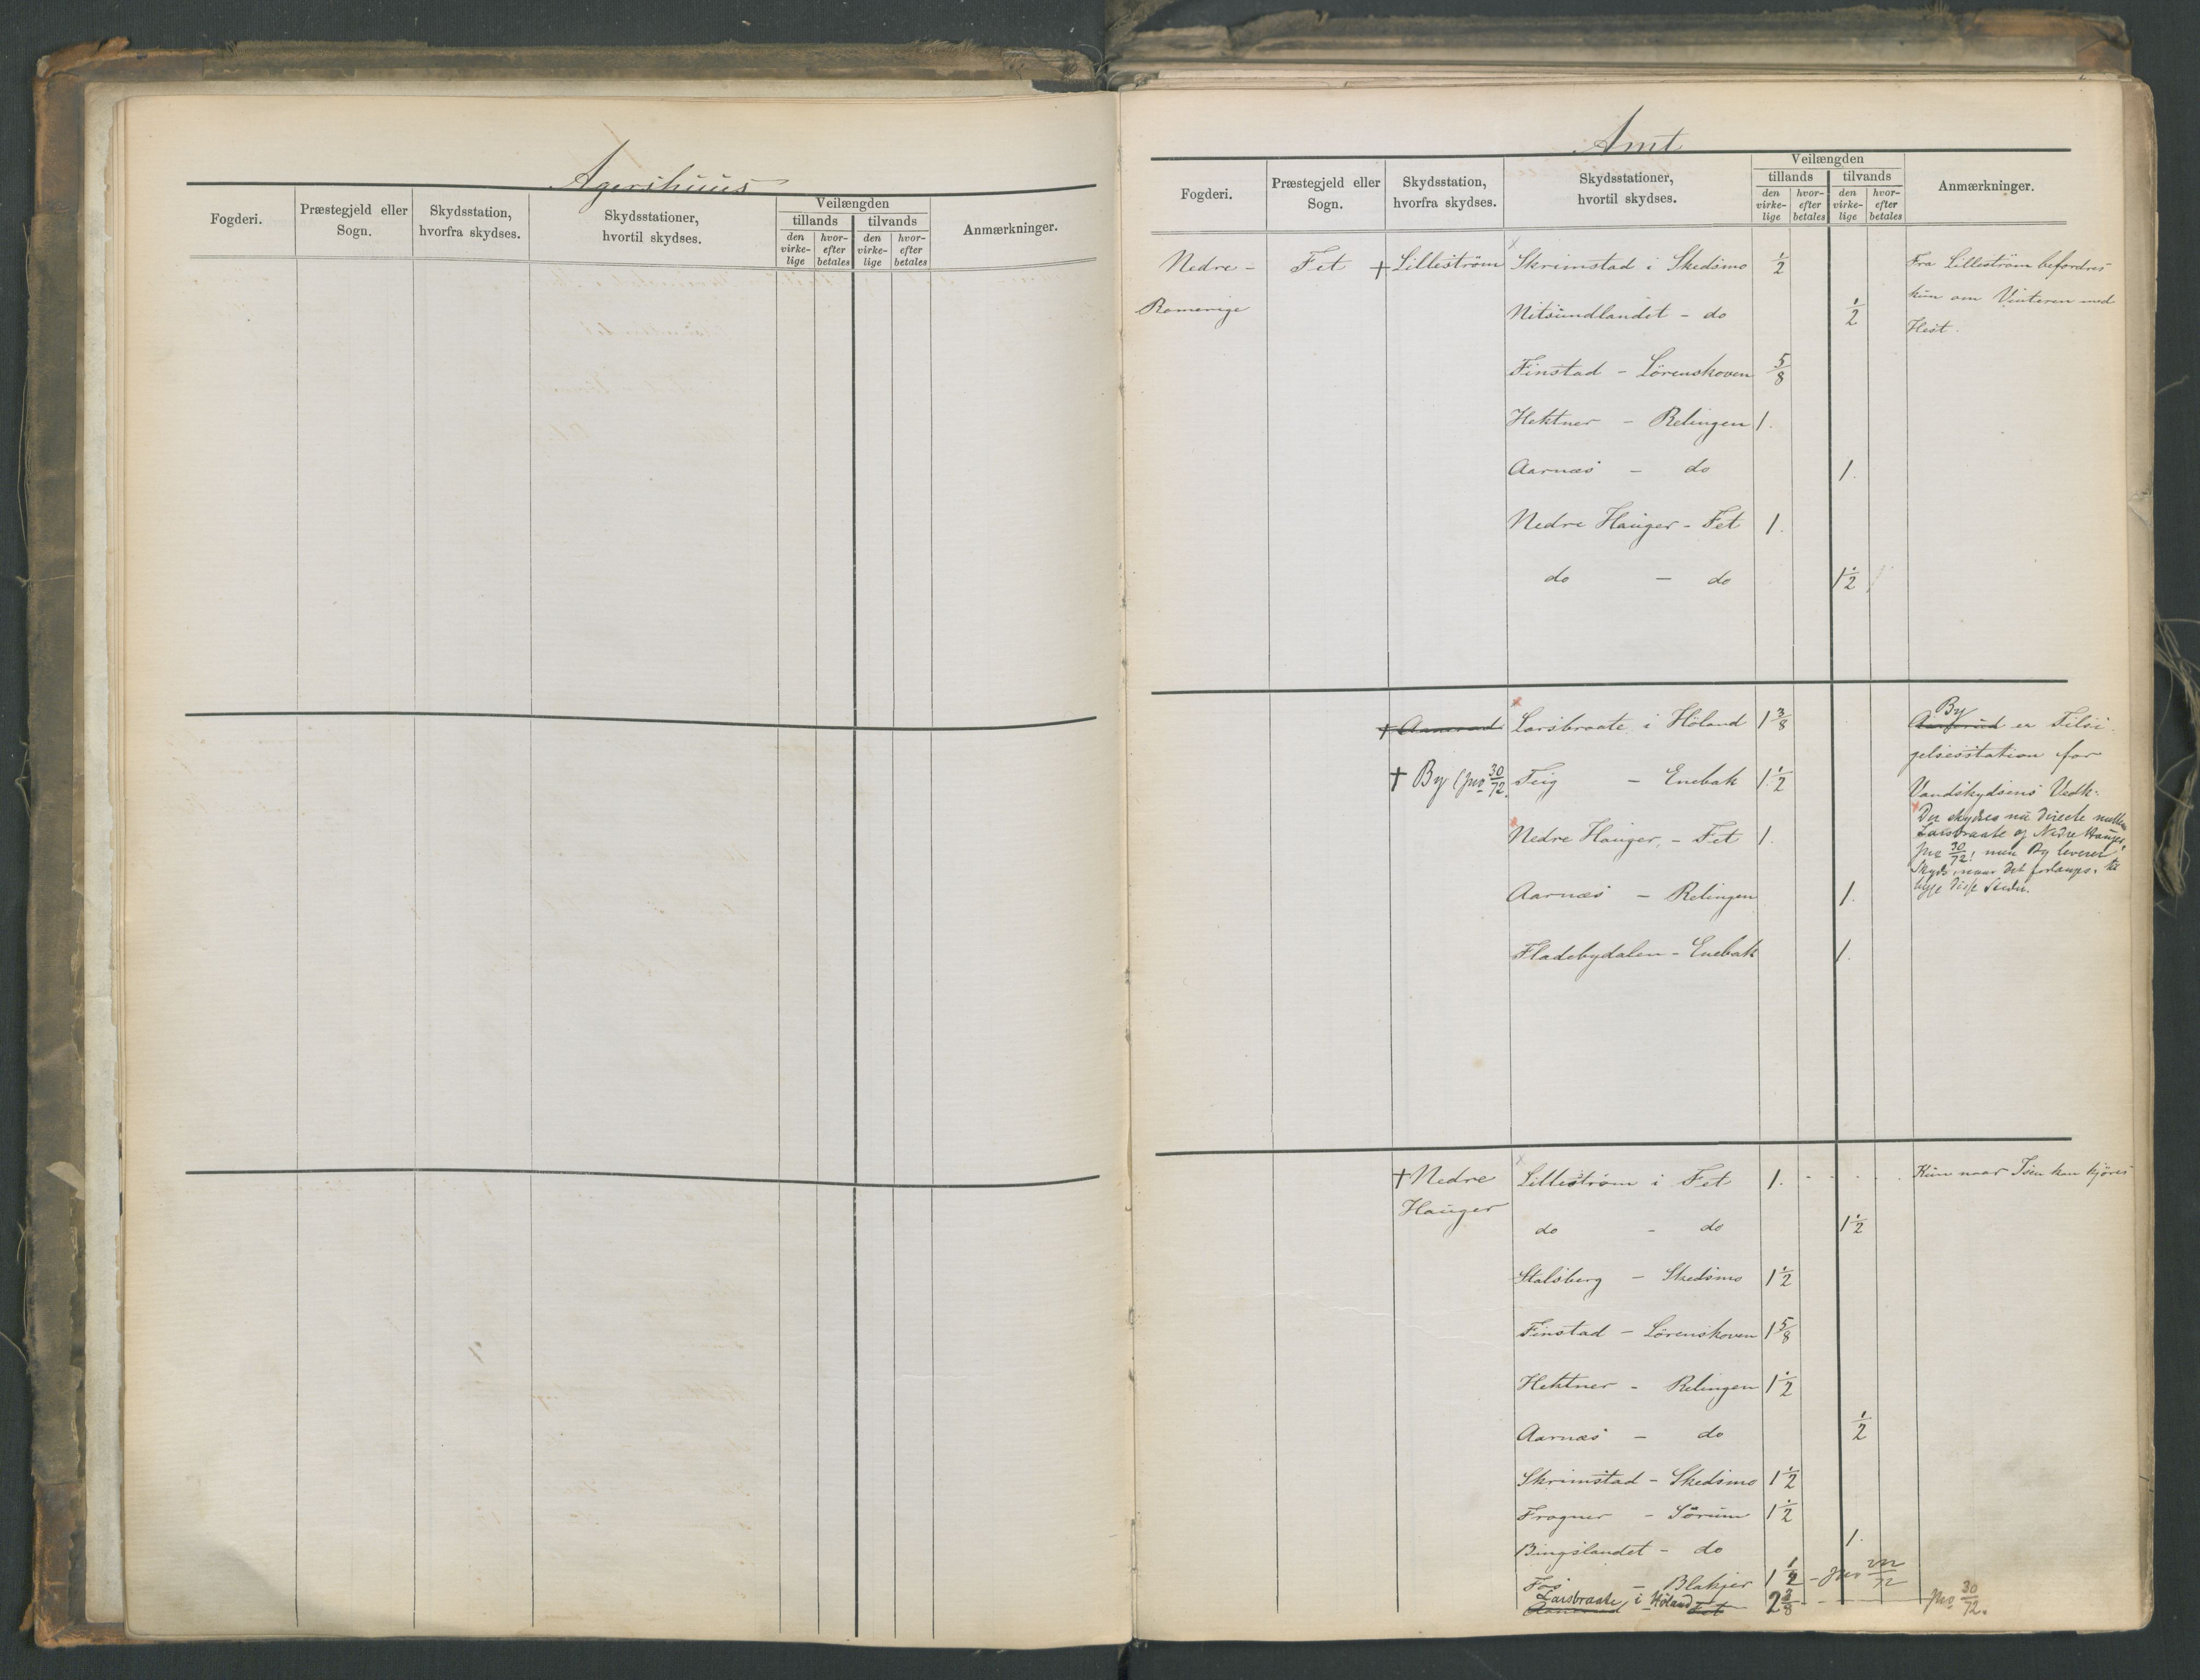 Agershuus
Fogderi.
Præstegjeld eller
Sogn.
Skydsstation,
hvorfra skydses.
Skydsstationer,
hvortil skydses.
Veilængden
tillands
tilvands
den
virke-
lige
hvor-
efter
betales
den
virke-
lige
hvor-
efter
betales
Anmærkninger.
Amt
Fogderi.
Præstegjeld eller
Sogn.
Skydsstation,
hvorfra skydses.
Skydsstationer,
hvortil skydses.
Veilængden
tillands
tilvands
den
virke-
lige
hvor-
efter
betales
den
virke-
lige
hvor-
efter
betales
Anmærkninger.
Nedre - Fet + Lilleström Skrimstad i Skedsmo 1/2
Romerige
Nitsundlandet - do 1/2
Finstad - Lörenskoven 5/8
Hektner - Relingen 1.
Aarnæs - do 1.
Nedre Hauger - Fet 1.
do - do 1 1/2
Fra Lilleström befordres
kun om Vinteren med
Hest.
+ Aanerud Larsbraate i Höland 1 3/8
+ By (pro 30/72. Teig - Enebak 1 1/2
Nedre Hauger, - Fet 1.
Aarnæs - Relingen 1.
Fladebydalen - Enebak 1.
By
er Tilsi-
gelsesstation for
Vandskydsens Vedk.
Der skydses nu directe mellem
Larsbraate og Nedre Hauger,
pro 30/72, men By leverer
Skyds, naar det forlanges, til
begge disse Steder.
+ Nedre Lilleström i Fet 1. - - - - Kun naar Isen kan kjöres
Hauger
do - do 1 1/2
Stalsberg - Skedsmo 1 1/2
Finstad - Lörenskoven 1 5/8
Hektner - Relingen 1 1/2
Aarnæs - do 1/2
Skrimstad - Skedsmo 1 1/2
Frogner - Sörum 1 1/2
Bingslandet - do 1.
Fos - Blakjer 1 1/2 - pro
Larsbraate i Höland 2 3/8 - pro 30/72.
Aanerud Fet